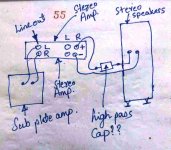 55
Line out
Stereo
Amp.
Stereo
speakers
L R
L
R
Stereo
Amp.
Sub plate amp.
high pass
Cap??